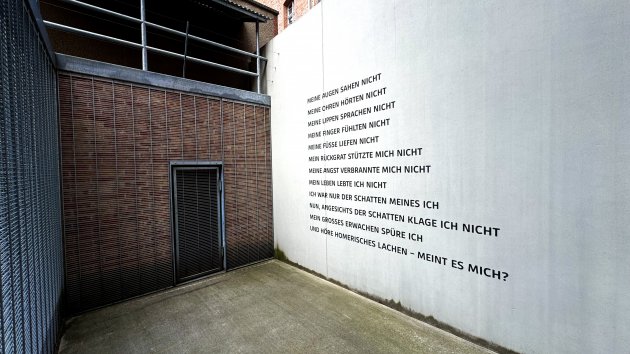 MEINE AUGEN SAHEN NICHT
MEINE OHREN HÖRTEN NICHT
MEINE LIPPEN SPRACHEN NICHT
MEINE FINGER FÜHLTEN NICHT
MEINE FÜSSE LIEFEN NICHT
MEIN RÜCKGRAT STÜTZTE MICH NICHT
MEINE ANGST VERBRANNTE MICH NICHT
MEIN LEBEN LEBTE ICH NICHT
ICH WAR NUR DER SCHATTEN MEINES ICH
NUN, ANGESICHTS DER SCHATTEN KLAGE ICH NICHT
MEIN GROSSES ERWACHEN SPÜRE ICH
UND HÖRE HOMERISCHES LACHEN – MEINT ES MICH?